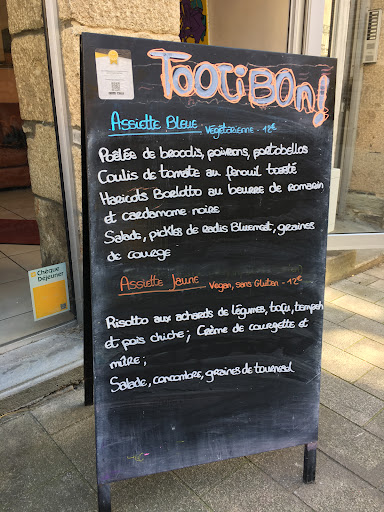 TOOTiBON!
Assiette Bleue Végétarienne - 12€
Poêlée de brocolis, poivrons, portobellos
Coulis de tomate au fenouil toasté
Haricots Borlotto au beurre de romarin
et cardamome noire
Salade, pickles de radis Bluemeat, graines
de courge
Assiette Jaune Vegan, sans Gluten - 12€
Risotto aux achards de légumes, tofu, tempeh
et pois chiche ; Crème de courgette et
mûre ;
Salade, concombre, graines de tournesol
Chèque
Déjeuner